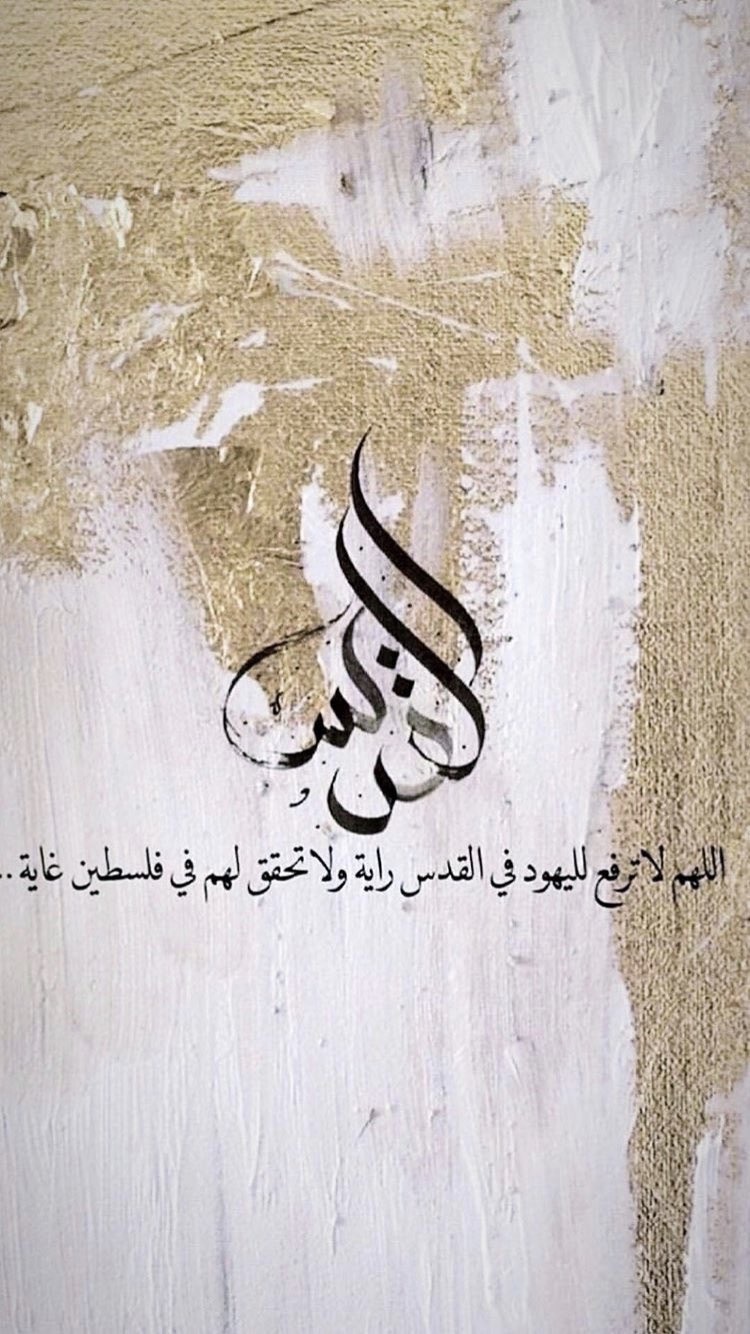 القدس
اللهم لا ترفع لليهود في القدس راية ولا تحقق لهم في فلسطين غاية ..